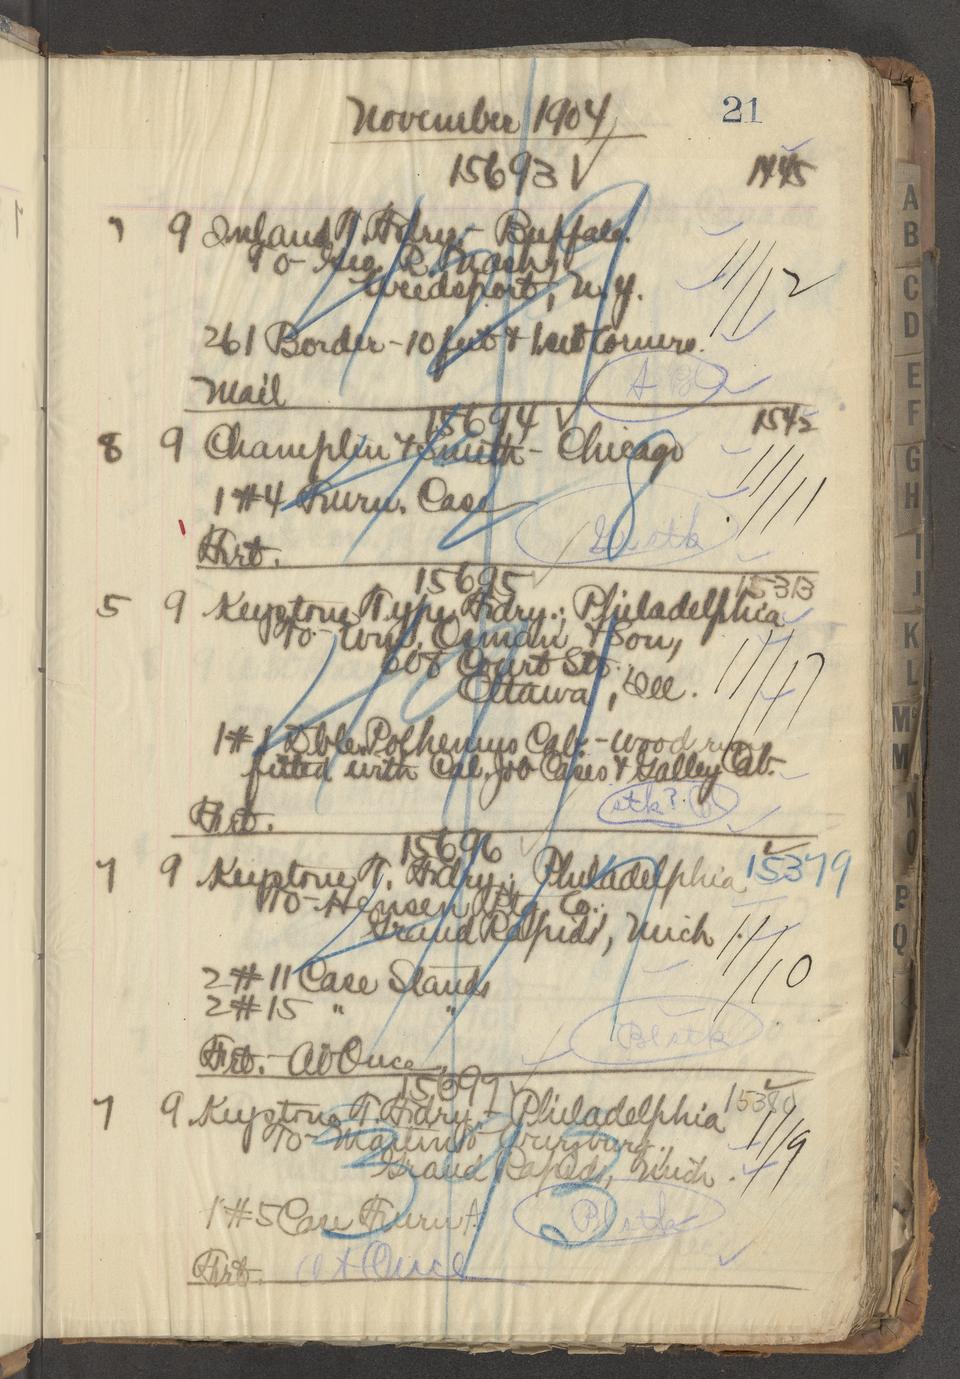 November 1904
21
15693 ✓
1445
7 9 Inland T. Fdry. - Buffalo.
To- Geo. R. Nash,
Weedsport, N.Y.
11/12
261 Border - 10 feet & Corners.
Mail
15694 ✓
1545
8 9 Champlin & Smith - Chicago
11/11
1 #4 Furn. Case
stk
Frt.
15695
15313
5 9 Keystone Type Fdry.; Philadelphia
To- Wm. Osman & Son,
Court St.
Ottawa, Ill.
11/17
1 #1 Dble. Polhemus Cab. - wood
fitted with Cal. Job Cases & Galley Cab.
stk?
Frt.
15696
15379
7 9 Keystone T. Fdry.; Philadelphia
To- Hensen Ptg. Co.
Grand Rapids, Mich.
11/10
2 #11 Case Stands
2 #15 " "
Bl stk
Frt. - At Once.
15697
15380
7 9 Keystone T. Fdry. - Philadelphia
To-
Grand Rapids, Mich.
11/9
1 #5 Case Furn
Bl stk
Frt. At Once
A
B
C
D
E
F
G
H
I
J
K
L
Mc
M
N
O
P
Q